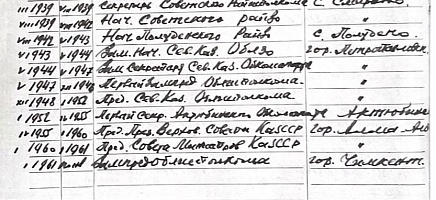 III 1939 VIII 1939 Секретарь Советского Райисполкома С. Смирново
VIII 1939 VIII 1942 Нач. Советского райзо "
VIII 1942 V 1943 Нач. Полуденского Райзо С. Полудено
V 1943 V 1944 Зам. Нач. Сев. Каз. Облзо гор. Петропавловск
V 1944 V 1947 Зам. Секретаря Сев. Каз. Обкома "
V 1947 1948 Первый зампред Облисполкома. "
XII 1948 I 1952 Пред. Сев. Каз. Облисполкома "
I 1952 IV 1955 Первый Секр. Актюбинского Обкома Актюбинск
IV 1955 I 1960 Пред. През. Верхов. Совета КазССР гор. Алма-Ата
I 1960 I 1961 Пред. Совета Министров КазССР "
I 1961 Зампредоблисполкома гор. Чимкент.